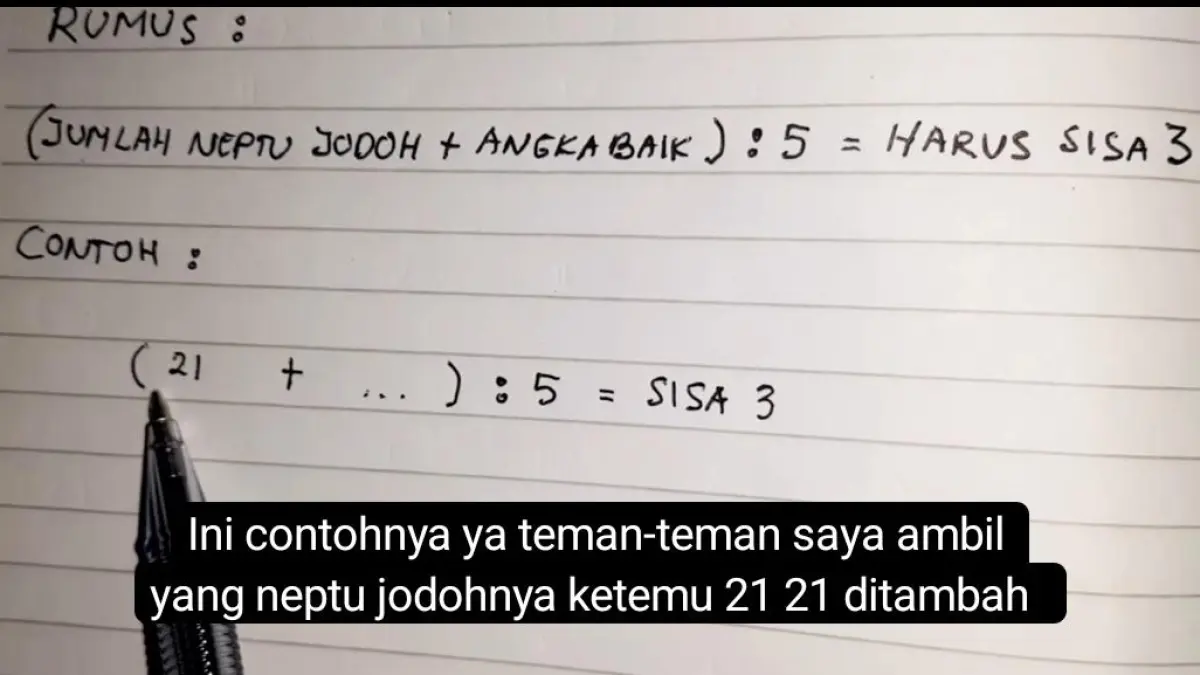 RUMUS :
(JUMLAH NEPTU JODOH + ANGKA BAIK) : 5 = HARUS SISA 3
CONTOH :
( 21 + ... ) : 5 = SISA 3
Ini contohnya ya teman-teman saya ambil
yang neptu jodohnya ketemu 21 21 ditambah